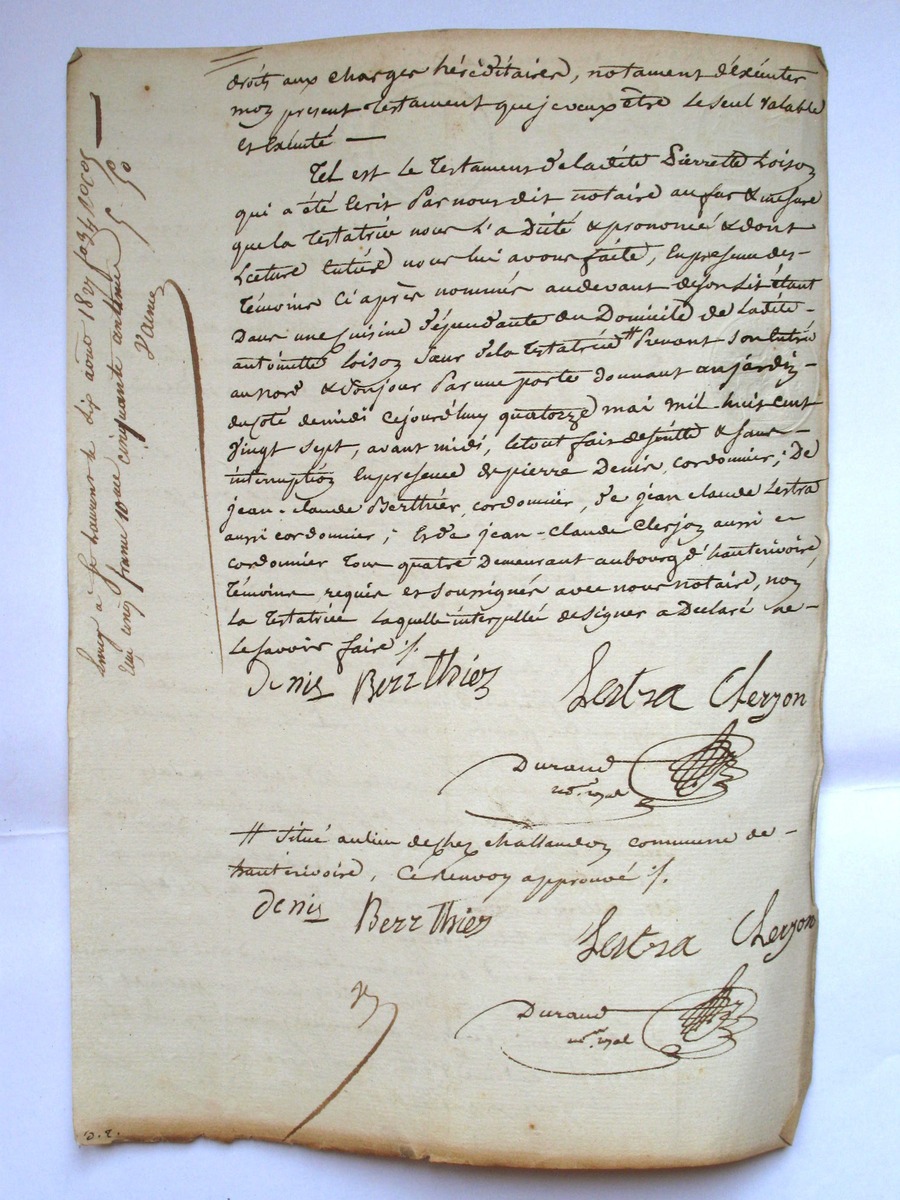 droits aux charges héréditaires, notament d'exécuter
mon présent testament que je veux être le seul valable
et exécuté —
Tel est le testament de ladite Pierrette Loison
qui a été écrit par nous dit notaire au fur & mesure
que la testatrice nous l'a dicté & prononcé & dont
lecture entière nous lui avons faite, en presence des
témoins ci après nommés au devant de son lit étant
dans une cuisine dépendante du domicile de ladite
antoinette Loison sœur de la testatrice # prenant son entrée
au nord & du jour par une porte donnant au jardin
du coté de midi cejourd'huy quatorze mai mil huit cent
vingt sept, avant midi, le tout fait de suitte & sans
interruption en presence de pierre Denis, cordonnier; De
jean-claude Berthier, cordonnier, de jean claude Lestra
aussi cordonnier; & de jean-claude Clerjon aussi
cordonnier tous quatre demeurant au bourg d'hauterivoire,
témoins requis et soussignés avec nous notaire, non
la testatrice laquelle interpellée de signer a déclaré ne
le savoir faire ./.
denis Berrthier Lestra Cherjon
Durand
not. royal
# situé au lieu de chez challandon commune de
hauterivoire, ce renvoy approuvé ./.
denis Berrthier Lestra Cherjon
Durand
not. royal
D. 2.
à St Laurent le dix aout 1827 fo 34
cinq francs 10me cinquante centimes
5 50